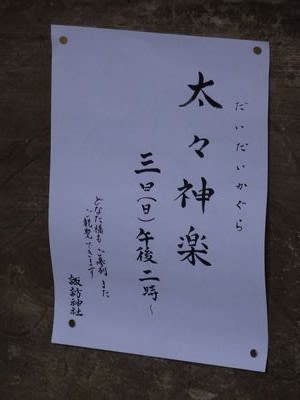 だいだいかぐら
太々神楽
三日(日)午後二時〜
どなた様もご参列また
ご観覧できます
諏訪神社